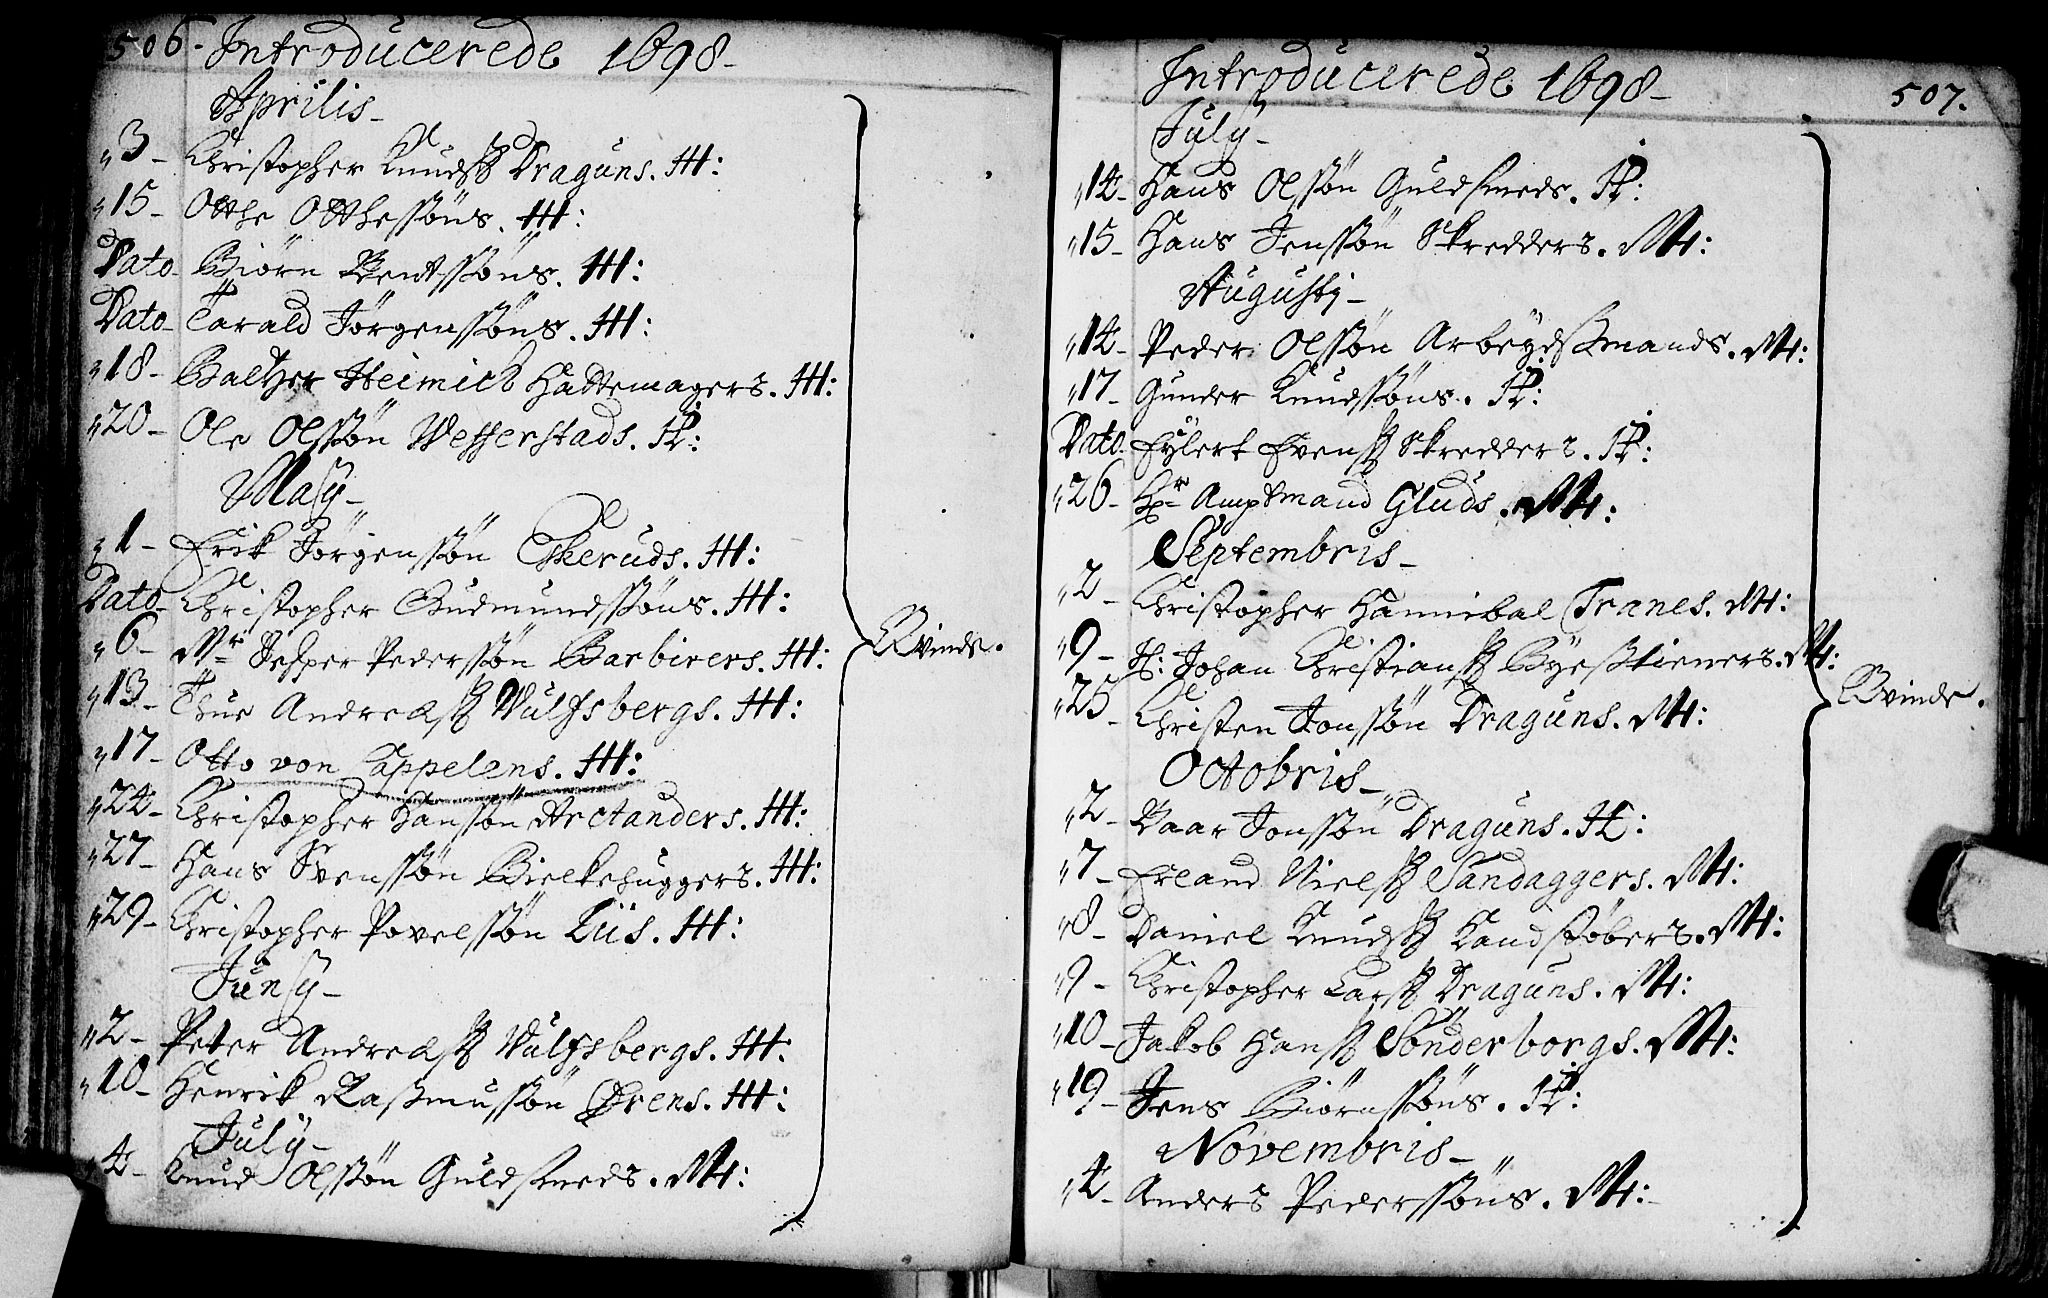 506. Introducerede 1698
Aprilis
3 Christopher Knudss: Draguns. H:
15 Otthe Otthessøns. H:
Dato Biørn Bentssøns. H:
Dato Tarald Jørgenssøns. H:
18 Baltzer Heimich Hattemagers. H:
20 Ole Olssøn Vesterstads. H:
Maij
1 Erik Jørgenssøn Eskeruds. H:
Dato Christopher Gudmundssøns. H:
6 Mr Jesper Pederssøn Barbirers. H:
13 Thue Andreæss: Wulfsbergs. H:
17 Otto von Cappelens. H:
24 Christopher Hanssøn Arctanders. H:
27 Hans Svenssøn Bielkehuggers. H:
29 Christopher Povelssøn Liis. H:
Junij
2 Peter Andreæss: Wulfsbergs. H:
10 Henrik Rasmussøn Ørens. H:
July
4 Knud Olssøn Guldsmeds. M:
Qvinde.
Introducerede 1698
507.
July
14 Hans Olssøn Guldsmeds. P:
15 Hans Jenssøn Skredders. M:
Augusti
14 Peder Olssøn Arbeydsmands. M:
17 Gunder Knudssøns. P:
Dato Eylert Evenss: Skredders. P:
26 Hr Amptmand Gluds. M:
Septembris
2 Christopher Hannibal Tranes. M:
9 H: Johan Christianss: Byens tieners. M:
25 Christen Jonssøn Draguns. M:
Octobris
2 Baar Jonssøn Draguns. H:
7 Erland Nielss: Sandaggers. M:
8 Daniel Knudss: Kandstøbers. M:
9 Christopher Larss: Draguns. M:
10 Jakob Hanss: Sønderborgs. M:
19 Jens Biørnssøns. P:
Novembris
4 Anders Pederssøns. M:
Qvinde.